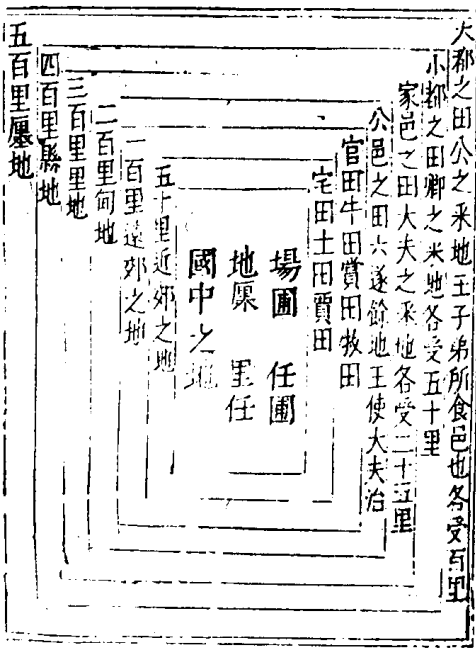 大都之田公之采地王子弟所食邑也各受百里
小都之田卿之采地各受五十里
家邑之田大夫之采地各受二十五里
公邑之田六遂餘地王使大夫治
官田牛田賞田牧田
宅田士田賈田
場圃 任圃
地廛 里任
國中之地
五十里近郊之地
一百里遠郊之地
二百里甸地
三百里里地
四百里縣地
五百里畺地